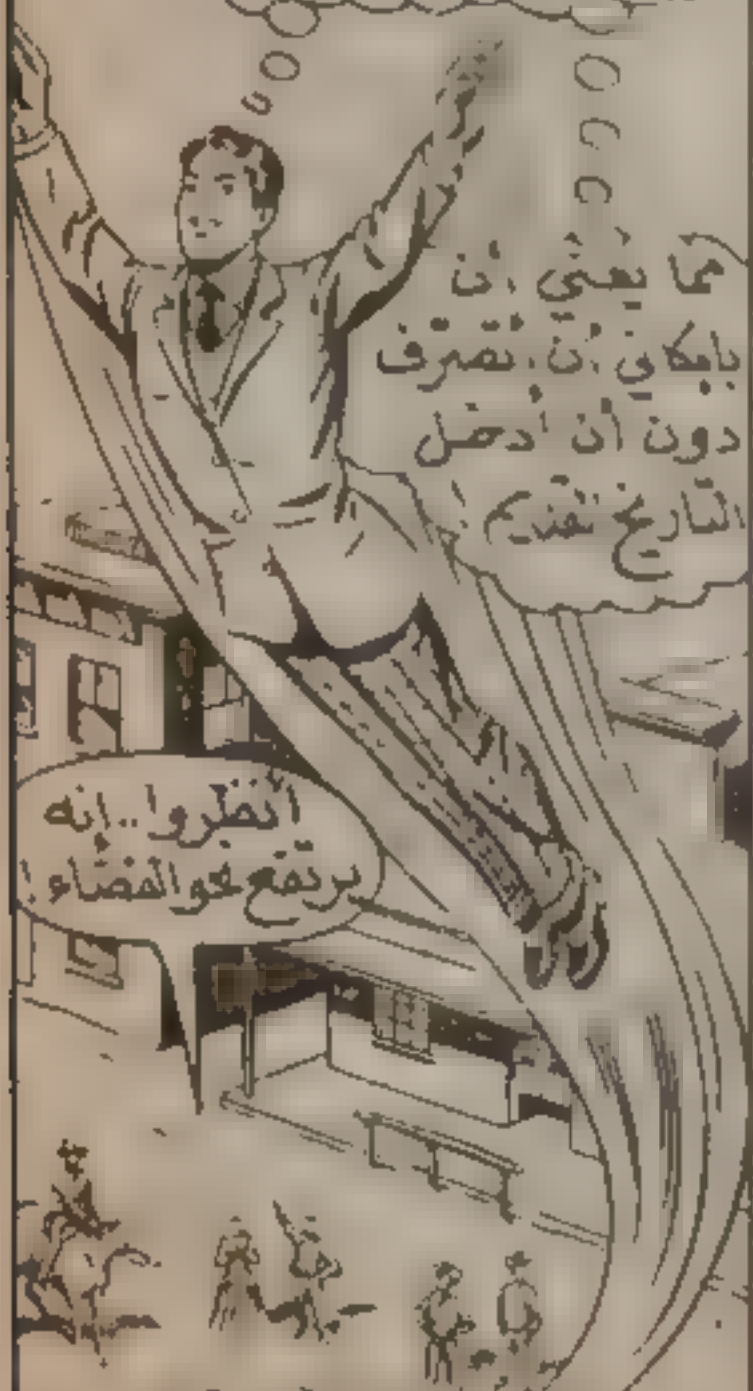 مما يعني أن
بإمكاني أن أتصرف
دون أن أدخل
التاريخ القديم
أنظروا.. إنه
يرتفع نحو الفضاء